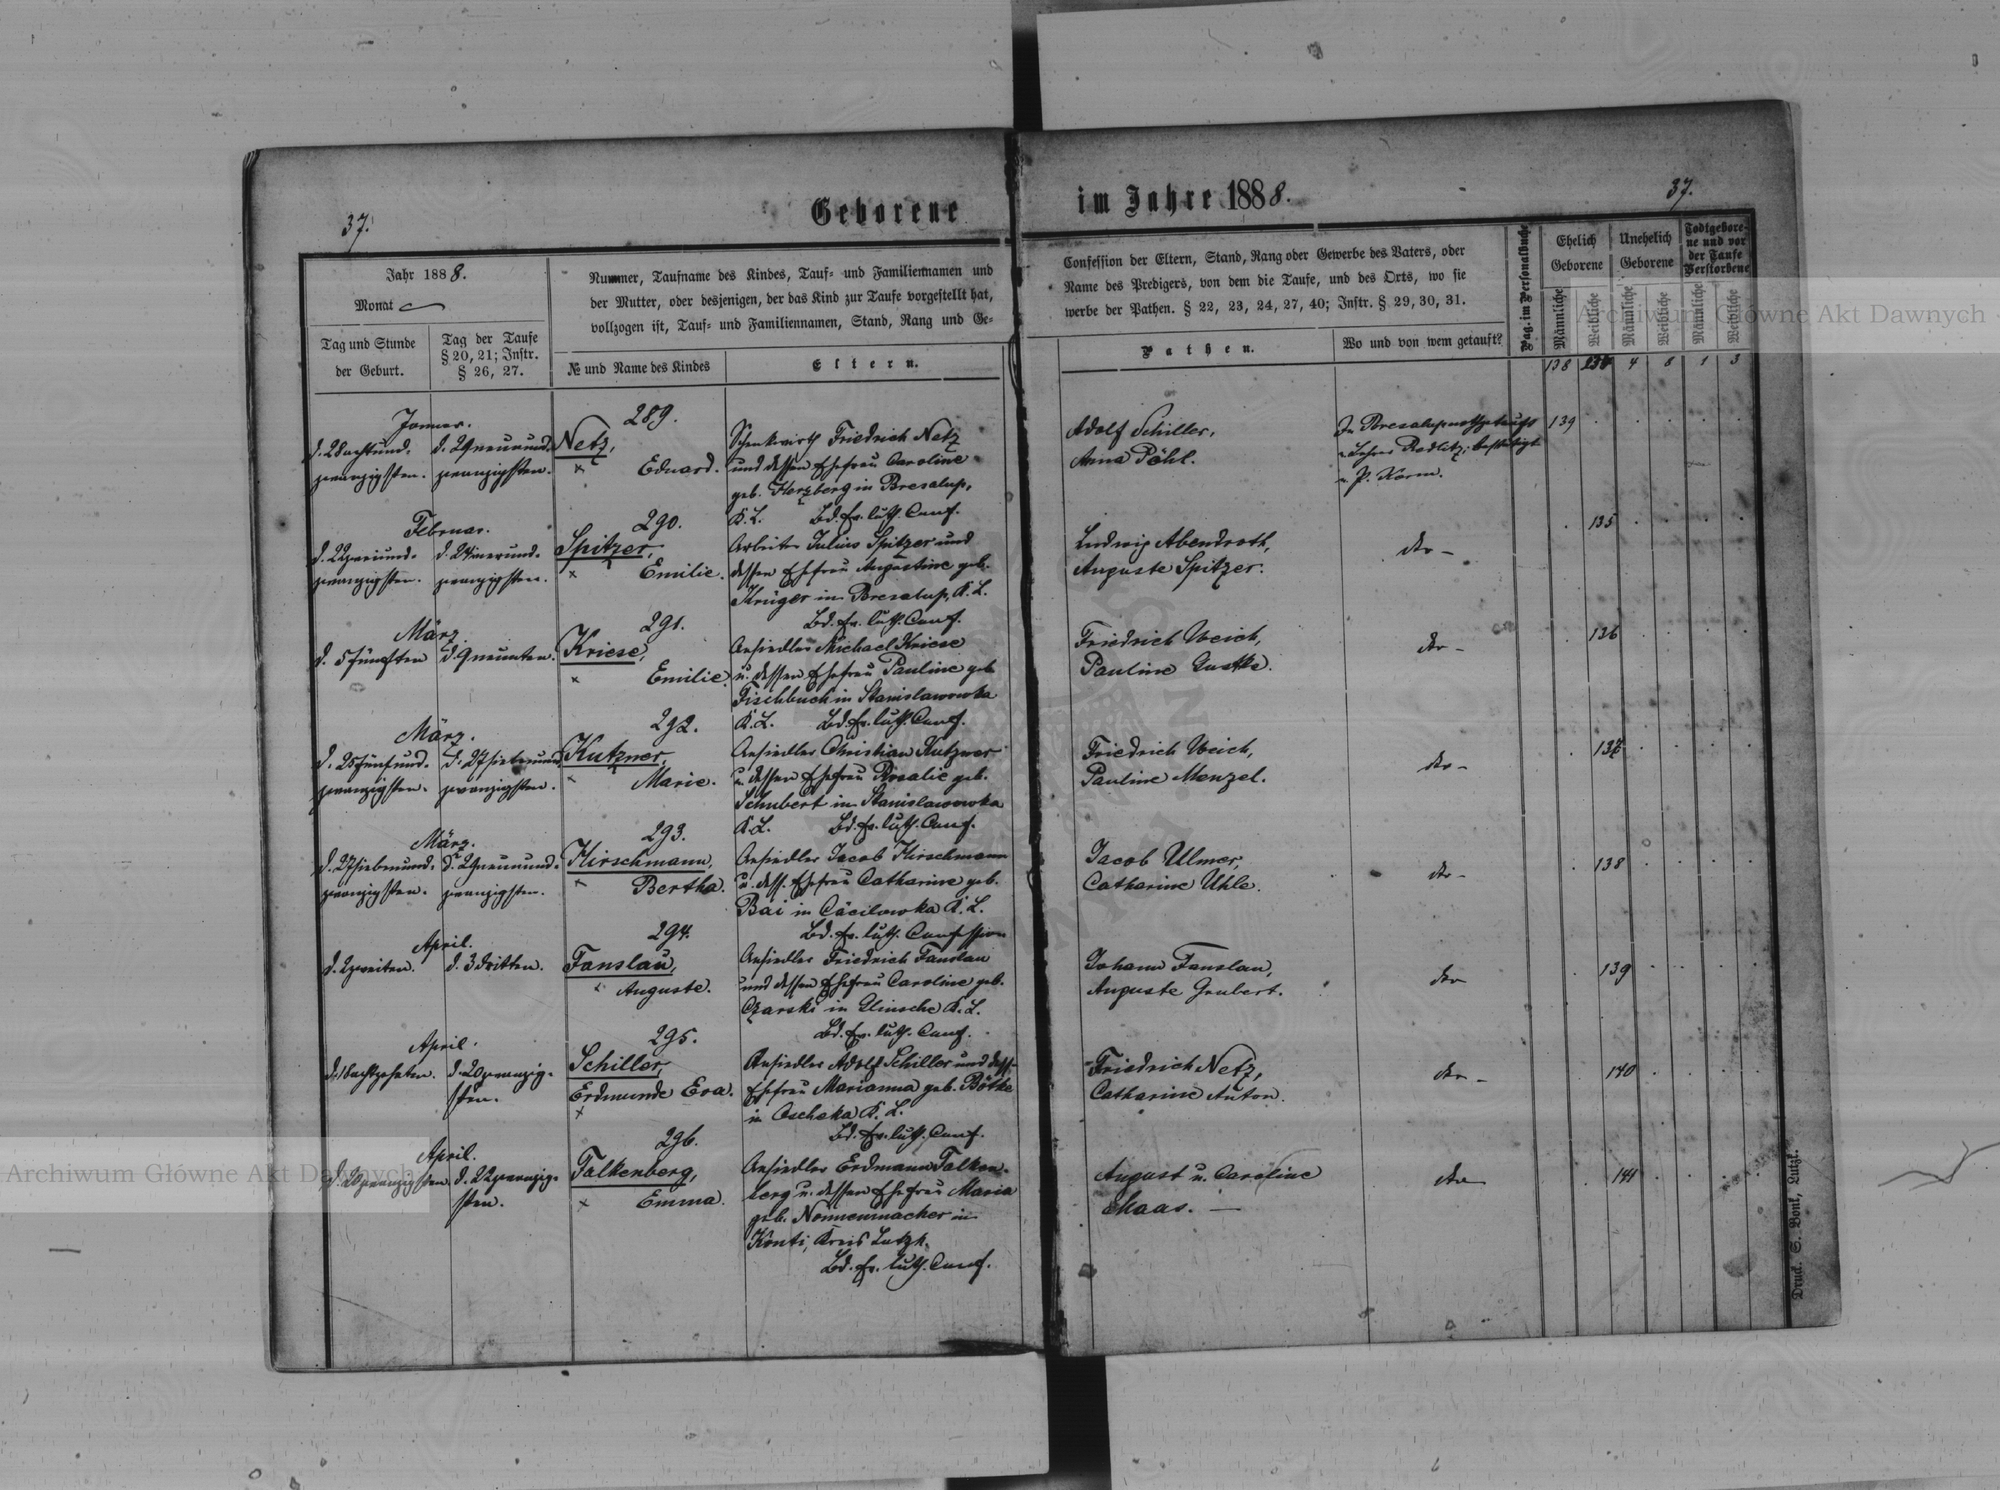 37.
Geborene
im Jahre 1888.
37.
Jahr 1888.
Monat
Tag und Stunde
der Geburt.
Tag der Taufe
§ 20, 21; Instr.
§ 26, 27.
Nummer, Taufname des Kindes, Tauf- und Familiennamen und
der Mutter, oder desjenigen, der das Kind zur Taufe vorgestellt hat,
vollzogen ist, Tauf- und Familiennamen, Stand, Rang und Ge-
№ und Name des Kindes
Eltern.
Confession der Eltern, Stand, Rang oder Gewerbe des Vaters, oder
Name des Predigers, von dem die Taufe, und des Orts, wo sie
werbe der Pathen. § 22, 23, 24, 27, 40; Instr. § 29, 30, 31.
Pathen.
Wo und von wem getauft?
Pag. im Personalbuche
Ehelich
Geborene
Unehelich
Geborene
Todtgebore-
ne und vor
der Taufe
Verstorbene
Männliche
Weibliche
Männliche
Weibliche
Männliche
Weibliche
138 4 8 1 3
Januar.
d. 28 achtund-
zwanzigsten.
d. 29 neunund-
zwanzigsten.
289.
Netz,
× Eduard.
Schenkwirth Friedrich Netz
und dessen Ehefrau Caroline
geb. Herzberg in Bresalup,
K. L. Bd. ev. luth. Conf.
Adolf Schiller,
Anna Pöhl.
139
Februar.
d. 22 zweiund-
zwanzigsten.
d. 24 vierund-
zwanzigsten.
290.
Spitzer,
× Emilie.
Arbeiter Julius Spitzer und
dessen Ehefrau Augustine geb.
Krüger in Bresalup, K. L.
Bd. ev. luth. Conf.
Ludwig Abendroth,
Auguste Spitzer.
dto -
135
März
d. 5 fünften
d. 9 neunten.
291.
Kriese,
× Emilie.
Ansiedler Michael Kriese
u. dessen Ehefrau Pauline geb.
Fischbuch in Stanislawowka
K. L. Bd. ev. luth. Conf.
Friedrich Weich,
Pauline
dto -
136
März.
d. 25 fünfund-
zwanzigsten.
d. 27 siebenund
zwanzigsten.
292.
Kutzner,
× Marie.
Ansiedler Christian Kutzner
u. dessen Ehefrau Rosalie geb.
Schubert in Stanislawowka
K. L. Bd. ev. luth. Conf.
Friedrich Weich,
Pauline Menzel.
dto -
137
März.
d. 27 siebenund-
zwanzigsten.
d. 29 neunund-
zwanzigsten.
293.
Hirschmann,
× Bertha.
Ansiedler Jacob Hirschmann
u. dess. Ehefrau Catharine geb.
Bai in Cäcilowka K. L.
Bd. ev. luth. Confession
Jacob Ulmer,
Catharine Uhle.
dto -
138
April.
d. 2 zweiten.
d. 3 dritten.
294.
Fanslau,
× Auguste.
Ansiedler Friedrich Fanslau
und dessen Ehefrau Caroline geb.
Czarski in K. L.
Bd. ev. luth. Conf.
Johann Fanslau,
Auguste Grubert.
dto
139
April.
d. 18 achtzehnten.
d. 20 zwanzig-
sten.
295.
Schiller,
Erdmunde Eva.
×
Ansiedler Adolf Schiller und dess.
Ehefrau Marianna geb. Böthe
in K. L.
Bd. ev. luth. Conf.
Friedrich Netz,
Catharine Anton.
dto -
140
April.
d. 20 zwanzigsten.
d. 22 zwanzig-
sten.
296.
Falkenberg,
× Emma.
Ansiedler Erdmann Falken-
berg u. dessen Ehefrau Maria
geb. Nonnenmacher in
Konti, Kreis Lutzk.
Bd. ev. luth. Conf.
August u. Caroline
Maas.
dto
141
Druck. S. Bonk, Lutzk.
Archiwum Główne Akt Dawnych
Archiwum Główne Akt Dawnych